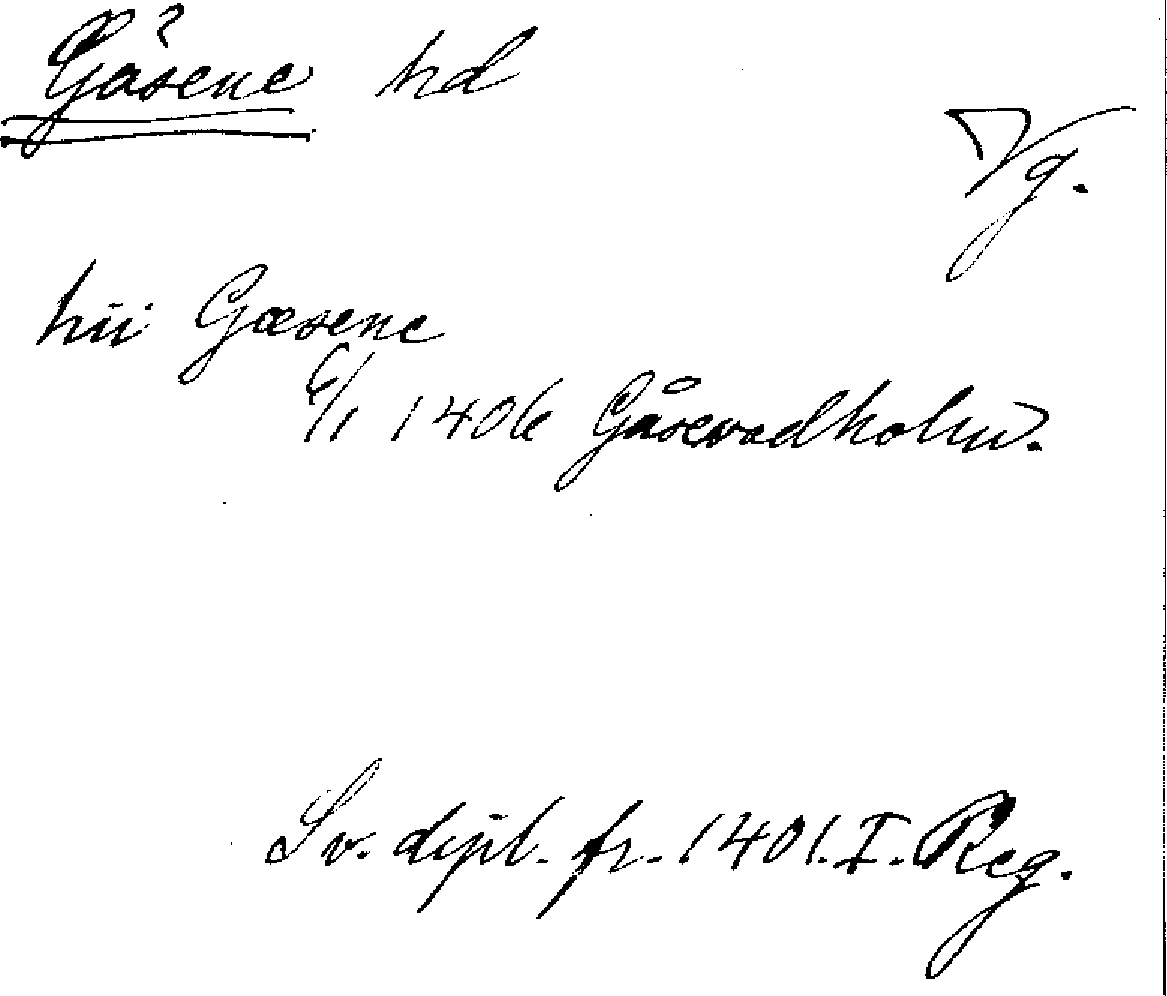 Gåsene hd
Vg.
hii Gæsene
6/1 1406 Gåsevadholm.
Sv. dipl. fr. 1401. I. Reg.